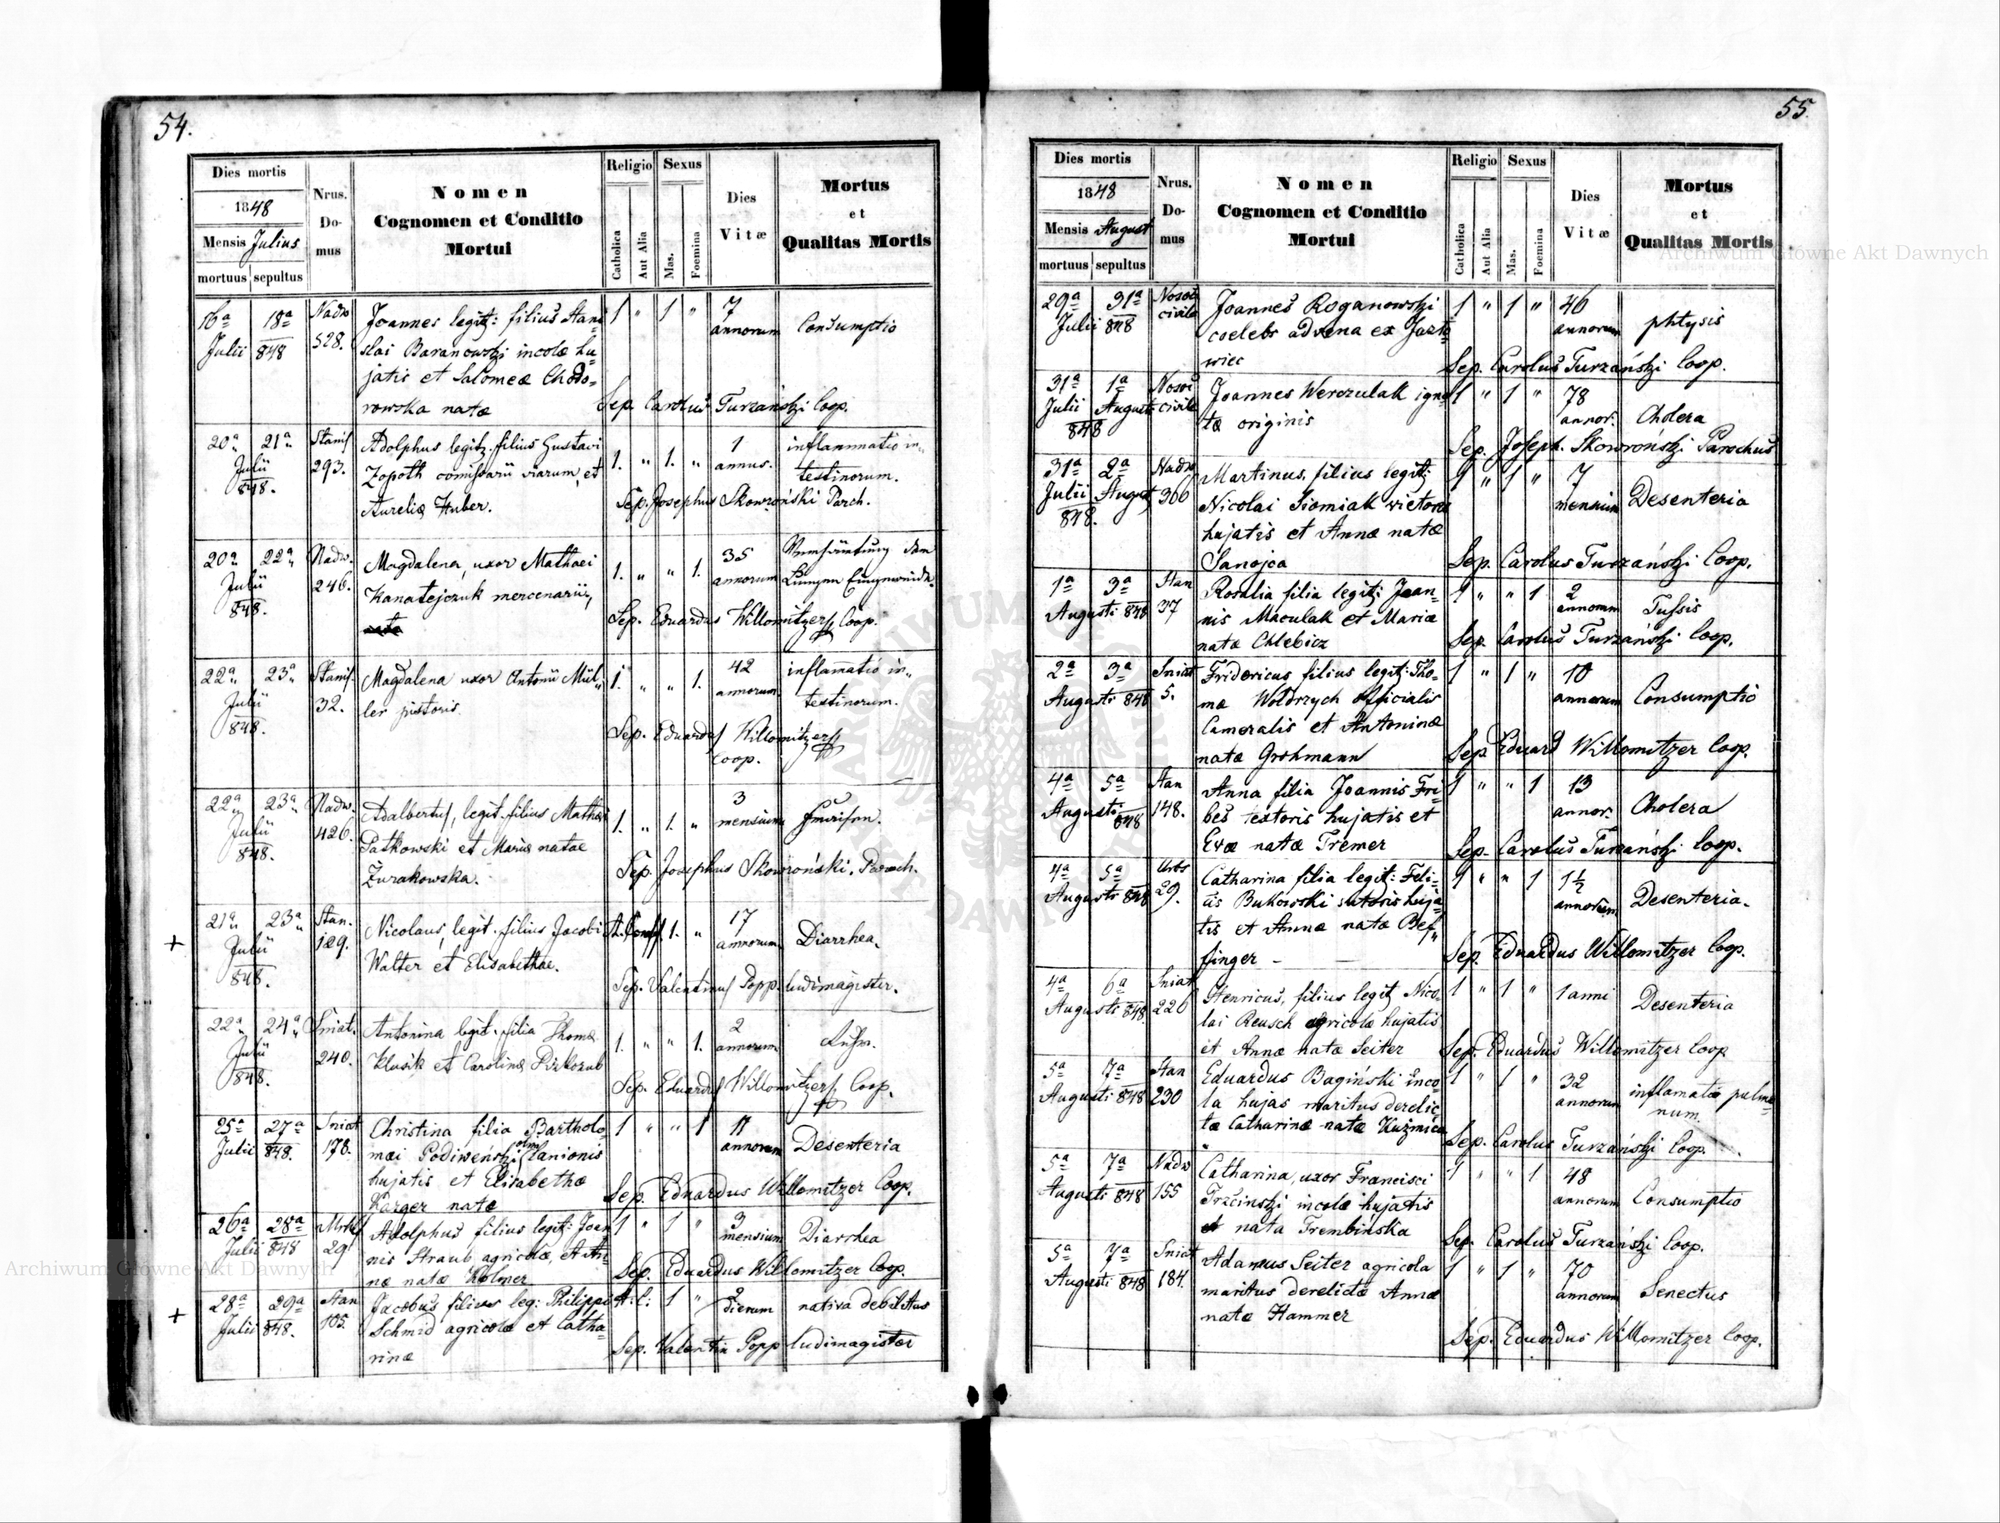 54.
Dies mortis
1848
Mensis Julius
mortuus sepultus
Nrus. Domus
Nomen
Cognomen et Conditio
Mortui
Religio
Catholica
Aut Alia
Sexus
Mas.
Foemina
Dies
Vitæ
Mortus
et
Qualitas Mortis
16a 18a Nadw 1 " 1 " 7
Julii 848 528. annorum Consumptio
Joannes legit: filius Stani
slai Baranowski incolæ hu-
jatis et Salomeæ Chodo-
rowska natæ
Sep. Carolus Turzański Coop.
20a 21a Stanis 1. " 1. " 1
Julii 848. 293. annus. inflammatio in-
testinorum.
Adolphus legit. filius Gustavi
Zopoth comissarii viarum, et
Aureliæ Huber.
Sep. Josephus Skowroński Parch.
20a 22a Nadw. 1. " " 1. 35
Julii 848. 246. annorum
Magdalena, uxor Mathaei
Kanatejczuk mercenarii,
Sep. Eduardus Willomitzer Coop.
22a 23a Stanis. 1. " " 1. 42
Julii 848. 32. annorum inflamatio in-
testinorum.
Magdalena uxor Antonii Mül-
ler pistoris.
Sep. Eduardus Willomitzer
Coop.
22a 23a Nadw. 1. " 1. " 3
Julii 848. 426. mensium
Adalbertus, legit. filius Mathæi
Patkowski et Mariæ natae
Żurakowska.
Sep. Josephus Skowroński. Parch.
+ 21a 23a Stan. 1. " 17
Julii 848. 129. annorum Diarrhea.
Nicolaus, legit. filius Jacobi
Walter et Elisabethae.
Sep. Valentinus Popp. ludimagister.
22a 24a Sniat. 1. " " 1. 2
Julii 848. 240. annorum
Antonina legit. filia Thomæ
Klusik et Carolinæ
Sep. Eduardus Willomitzer Coop.
25a 27a Sniat 1 " " 1 11
Julii 848. 178. annorum Desenteria
Christina filia Bartholo-
mæi Podiweński olim lanionis
hujatis et Elisabethæ
Karger natæ
Sep. Eduardus Willomitzer Coop.
26a 28a 1 " 1 " 3
Julii 848 29 mensium Diarrhea
Adolphus filius legit: Joan
nis Straub agricolæ, et An-
næ natæ Kolmer
Sep. Eduardus Willomitzer Coop.
+ 28a 29a Stan 1 " 2
Julii 848. 105. dierum nativa debilitas
Jacobus filius leg: Philippi
Schmid agricolæ et Catha-
rinæ
Sep. Valentin Popp ludimagister
55.
Dies mortis
1848
Mensis August
mortuus sepultus
Nrus. Domus
Nomen
Cognomen et Conditio
Mortui
Religio
Catholica
Aut Alia
Sexus
Mas.
Foemina
Dies
Vitæ
Mortus
et
Qualitas Mortis
29a 31a Nosoc civile 1 " 1 " 46
Julii 848 annorum phtysis
Joannes Roganowski
coelebs advena ex Jazło
wiec
Sep. Carolus Turzański Coop.
31a 1a Nosoc civile 1 " 1 " 78
Julii August 848 annor. Cholera
Joannes Werczulak igno
tæ originis
Sep. Joseph. Skowroński Parochus
31a 2a Nadw 1 " 1 " 7
Julii August 848. 366 mensium Desenteria
Martinus, filius legit:
Nicolai Siomiak vietoris
hujatis et Annæ natæ
Sanojca
Sep. Carolus Turzański Coop.
1a 3a Stan 1 " " 1 2
Augusti 848 37 annorum Tussis
Rosalia filia legit: Joan-
nis Maculak et Mariæ
natæ Chlebicz
Sep. Carolus Turzański Coop.
2a 3a Sniat 1 " 1 " 10
Augusti 848 5. annorum Consumptio
Fridericus filius legit: Tho-
mæ Woldrzych officialis
Cameralis et Antoninæ
natæ Grohmann
Sep. Eduard Willomitzer Coop.
4a 5a Stan 1 " " 1 13
Augusti 848 148. annor. Cholera
Anna filia Joannis Fri-
bes textoris hujatis et
Evæ natæ Tremer
Sep. Carolus Turzański Coop.
4a 5a Urbs 1 " " 1 1½
Augusti 848 29. annorum Desenteria.
Catharina filia legit: Feli-
cis Bukowski sutoris huja-
tis et Annæ natæ Bef-
finger
Sep. Eduardus Willomitzer Coop.
4a 6a Sniat 1 " 1 " 1 anni
Augusti 848. 226 Desenteria
Henricus, filius legit Nico-
lai Reusch agricolæ hujatis
et Annæ natæ Seiter
Sep. Eduardus Willomitzer Coop
5a 7a Stan 1 " 1 " 32
Augusti 848 230 annorum inflamatio pulmo-
num.
Eduardus Bagiński inco-
la hujas maritus derelic
tæ Catharinæ natæ Kuzmicz
Sep. Carolus Turzański Coop.
5a 7a Nadw 1 " " 1 48
Augusti 848 155 annorum Consumptio
Catharina, uxor Francisci
Trzcinski incolæ hujatis
nata Trembińska
Sep. Carolus Turzański Coop.
5a 7a Sniat 1 " 1 " 70
Augusti 848 184. annorum Senectus
Adamus Seiter agricola
maritus derelictæ Annæ
natæ Hammer
Sep. Eduardus Willomitzer Coop.
Archiwum Główne Akt Dawnych
Archiwum Główne Akt Dawnych